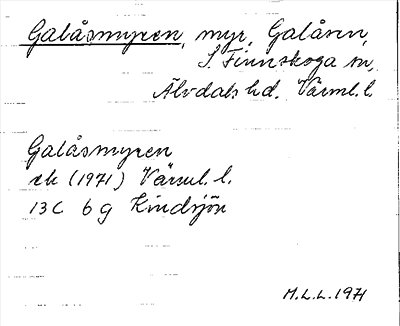 Galåsmyren, myr, Galåsen,
S. Finnskoga sn,
Älvdals hd. Värml. l.
Galåsmyren
ek (1971) Värml. l.
13C 6g Kindsjön
M.L.L. 1971